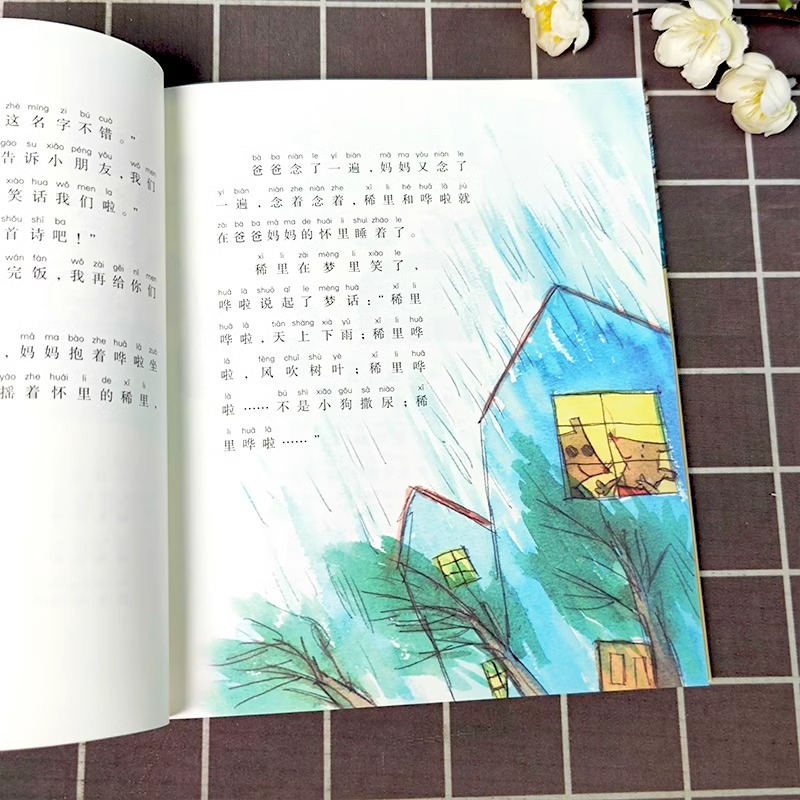 zhè míng zi bú cuò
这名字不错。”
gào su xiǎo péng yǒu wǒ men
告诉小朋友,我们
xiào hua wǒ men la
笑话我们啦。”
shǒu shī ba
首诗吧!”
wán fàn wǒ zài gěi nǐ men
完饭,我再给你们
mā ma bào zhe huā lā zuò
,妈妈抱着哗啦坐
yáo zhe huái li de xī li
摇着怀里的稀里,
bà ba niàn le yí biàn mā ma yòu niàn le
爸爸念了一遍,妈妈又念了
yí biàn niàn zhe niàn zhe xī li hé huā lā jiù
一遍,念着念着,稀里和哗啦就
zài bà ba mā ma de huái li shuì zháo le
在爸爸妈妈的怀里睡着了。
xī li zài mèng li xiào le
稀里在梦里笑了,
huā lā shuō qǐ le mèng huà xī li
哗啦说起了梦话:“稀里
huā lā tiān shàng xià yǔ xī li huā
哗啦,天上下雨;稀里哗
lā fēng chuī shù yè xī li huā
啦,风吹树叶;稀里哗
lā bú shì xiǎo gǒu sā niào xī
啦……不是小狗撒尿;稀
li huā lā
里哗啦……”